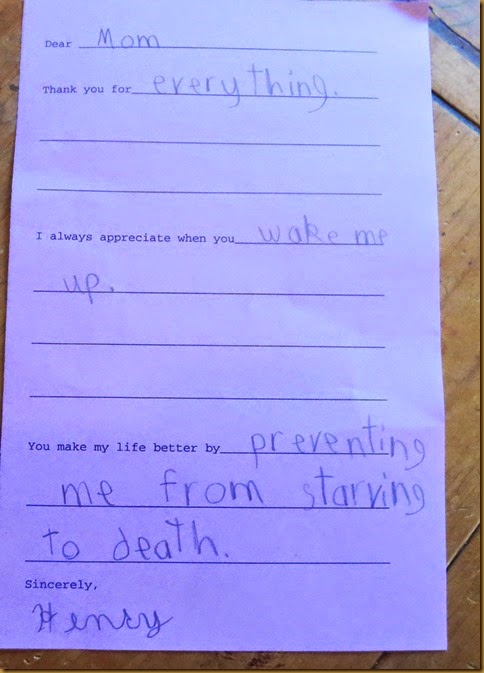 Dear Mom
Thank you for everything.
I always appreciate when you wake me
up.
You make my life better by preventing
me from starving
to death.
Sincerely,
Henry